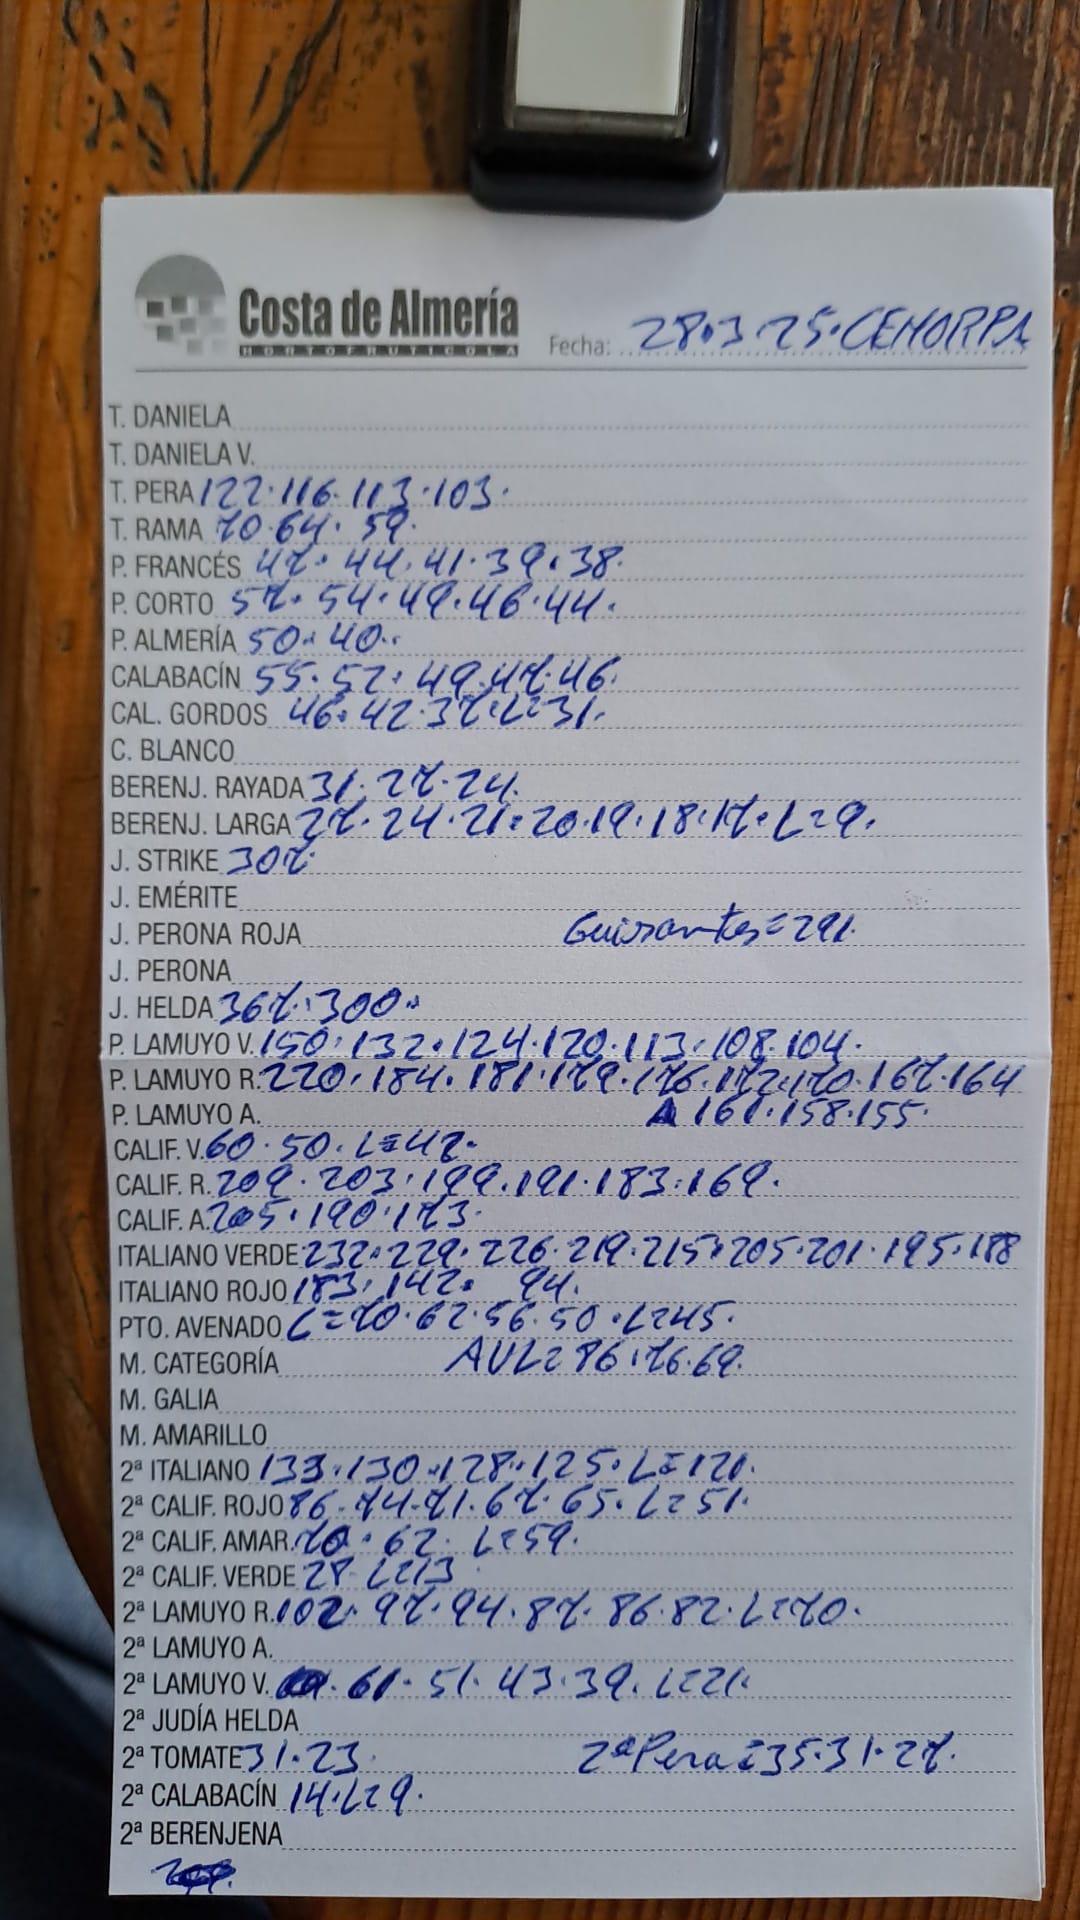 Costa de Almería
HORTOFRUTICOLA
Fecha: 28.3 25. CEHORPA
T. DANIELA
T. DANIELA V.
T. PERA 122.116.113.103.
T. RAMA 70.64. 59.
P. FRANCÉS 47. 44. 41. 39. 38.
P. CORTO 57. 54. 49. 46. 44.
P. ALMERÍA 50. 40..
CALABACÍN 55. 52. 49. 47. 46.
CAL. GORDOS 46. 42. 37. L=31.
C. BLANCO
BERENJ. RAYADA 31. 27. 24.
BERENJ. LARGA 27. 24. 21. 20. 19. 18. 17. L=9.
J. STRIKE 307.
J. EMÉRITE
J. PERONA ROJA Guisantes=291.
J. PERONA
J. HELDA 367. 300.
P. LAMUYO V. 150. 132. 124. 120. 113. 108. 104.
P. LAMUYO R. 220. 184. 181. 179. 176. 172. 170. 167. 164
P. LAMUYO A. 161. 158. 155.
CALIF. V. 60. 50. L=42.
CALIF. R. 209. 203. 199. 191. 183. 169.
CALIF. A. 205. 190. 173.
ITALIANO VERDE 232. 229. 226. 219. 215. 205. 201. 195. 188
ITALIANO ROJO 183. 142. 94.
PTO. AVENADO L=70. 62. 56. 50. L=45.
M. CATEGORÍA AUL=86. 76. 69.
M. GALIA
M. AMARILLO
2ª ITALIANO 133. 130. 128. 125. L=121.
2ª CALIF. ROJO 86. 74. 71. 67. 65. L=51.
2ª CALIF. AMAR. 70. 62. L=59.
2ª CALIF. VERDE 28 L=13
2ª LAMUYO R. 102. 97. 94. 87. 86. 82. L=70.
2ª LAMUYO A.
2ª LAMUYO V. 61. 51. 43. 39. L=21.
2ª JUDÍA HELDA
2ª TOMATE 31. 23. 2ª Pera=35. 31. 27.
2ª CALABACÍN 14. L=9.
2ª BERENJENA